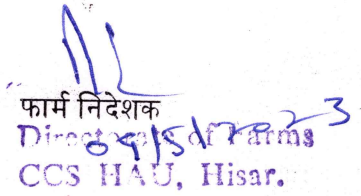 फार्म निदेशक
Directorate of Farms
CCS HAU, Hisar.